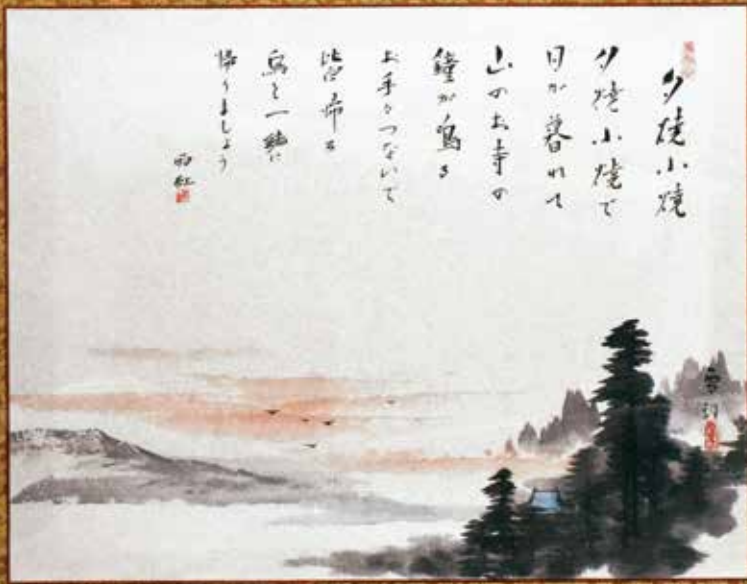 夕焼小焼
夕焼小焼で
日が暮れて
山のお寺の
鐘が鳴る
お手々つないで
皆帰る
烏と一緒に
帰りましょう
雨紅